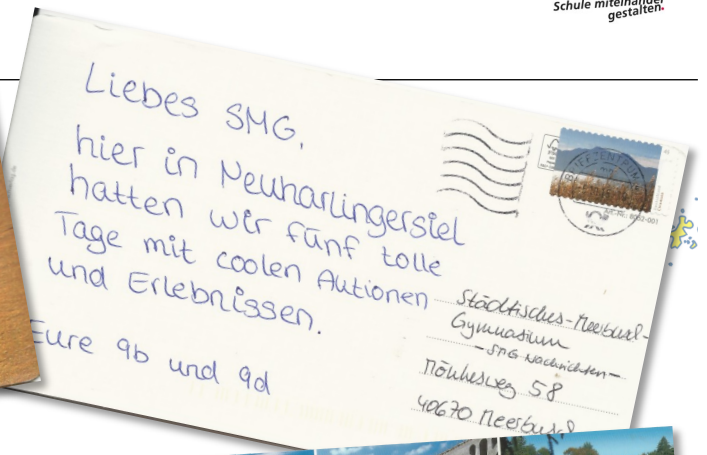 Schule miteinander
gestalten.
Liebes SMG,
hier in Neuharlingersiel
hatten wir fünf tolle
Tage mit coolen Aktionen
und Erlebnissen.
Eure 9b und 9d
Städtisches-Meerbusch-
Gymnasium
- SMG Nachrichten -
Mönkesweg 58
40670 Meerbusch